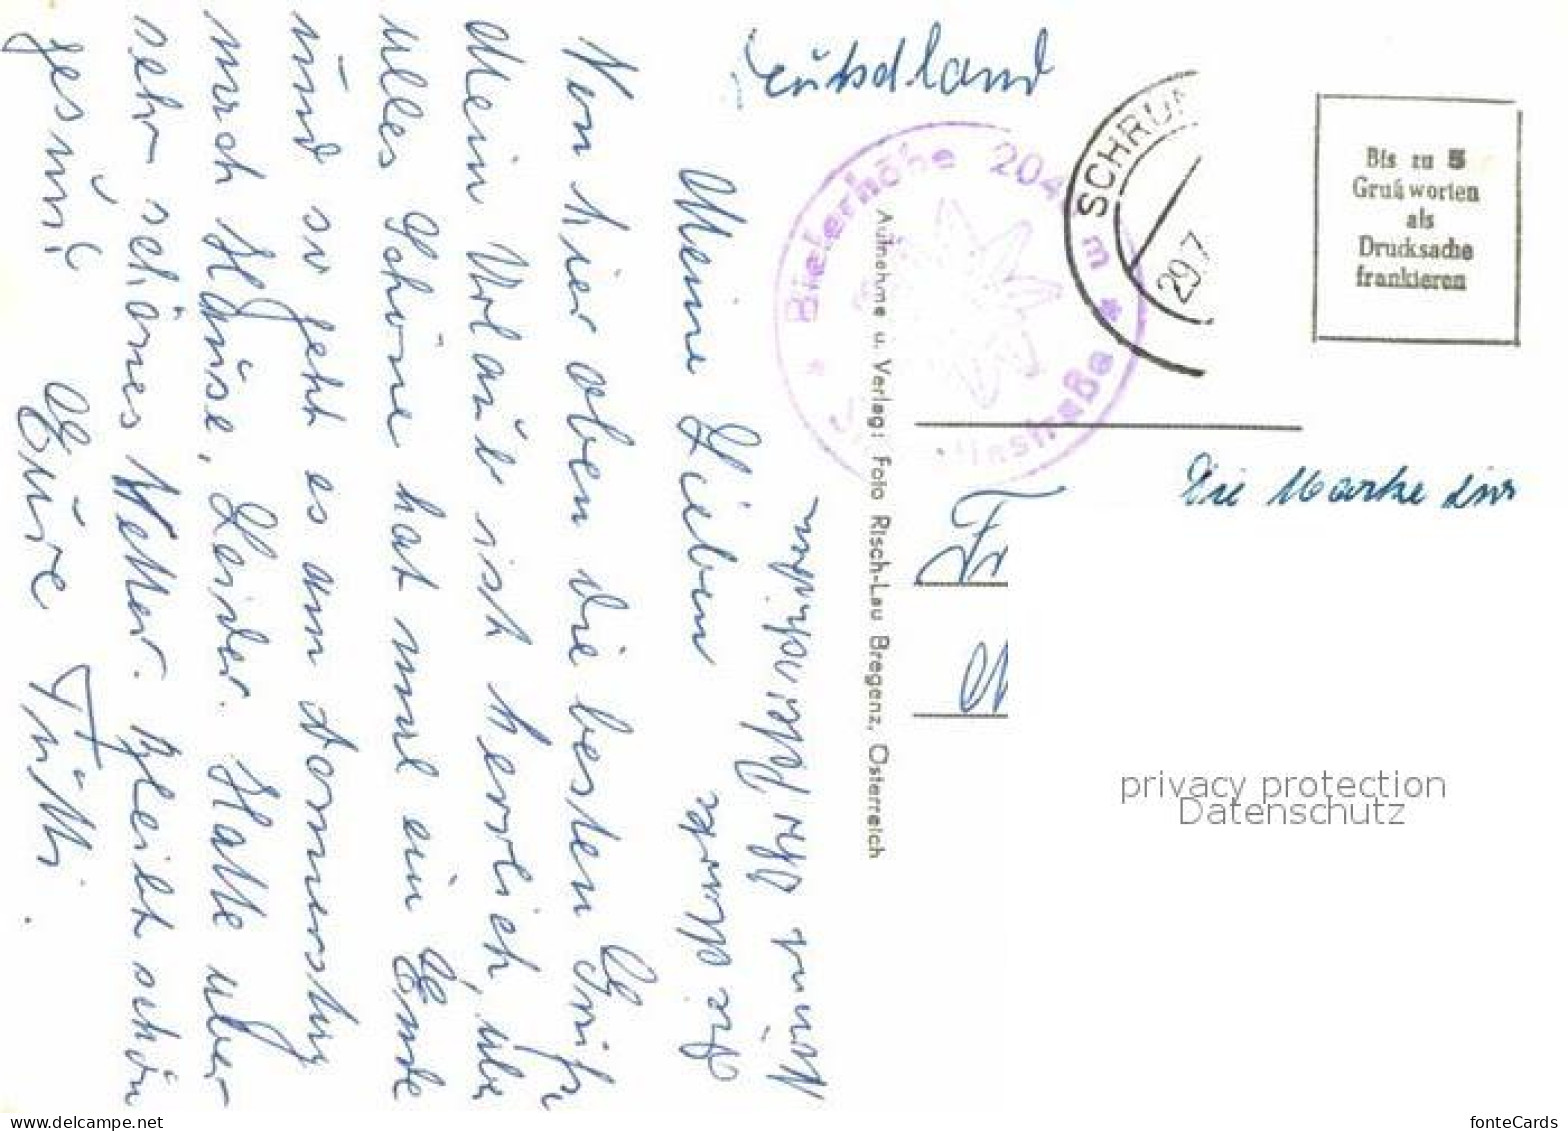 Deutschland
Meine Lieben
Von hier oben die besten Grüße
Mein Urlaub ist herrlich, aber
alles Schöne hat mal ein Ende
und so geht es am Donnerstag
nach Hause. Leider. Hatte aber
sehr schönes Wetter. Bleibt schön
gesund
Eure Trütti.
Aufnahme u. Verlag: Foto Risch-Lau Bregenz, Österreich
Bielerhöhe 204
m
straße
SCHRUN
29.7
Bis zu 5
Grußworten
als
Drucksache
frankieren
Die Marke
Fr
privacy protection
Datenschutz
fonteCards